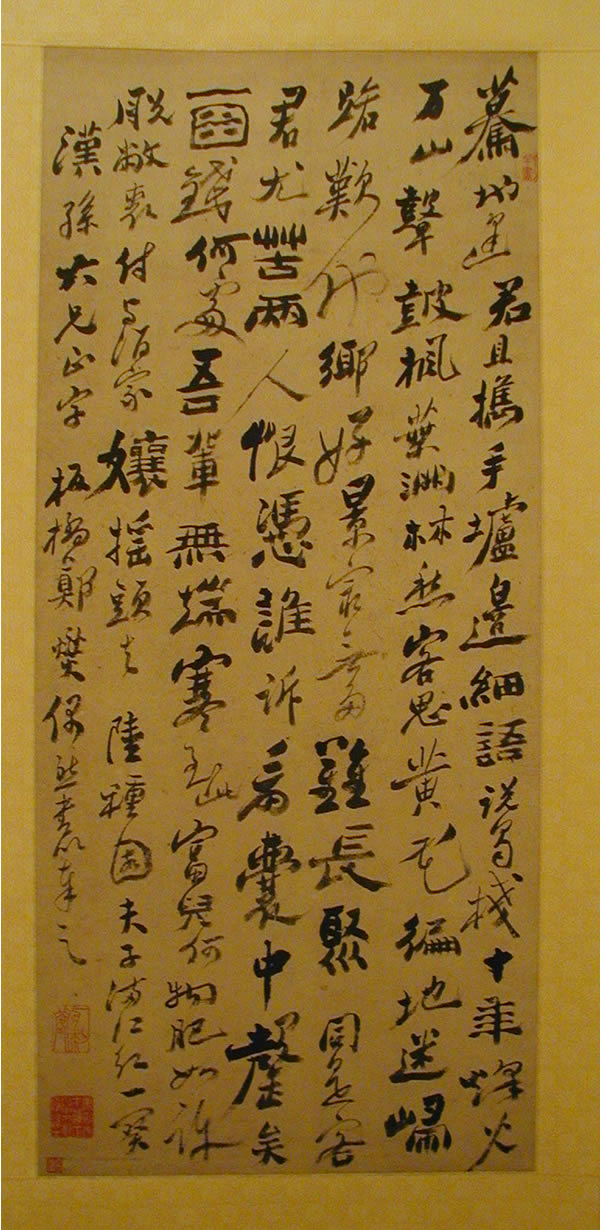 驀地逢君且攜手壚邊細語說蜀棧十年烽火
万山鼙鼓楓葉滿林愁客思黃花徧地迷歸
路歎他鄉好景最無多難長聚同是客
君尤苦兩人恨憑誰訴看囊中罄矣
酒錢何處吾輩無端寒至此富兒何物肥如許
脫敝裘付與酒家孃搖頭去陸種園夫子滿江紅一闋
漢孫大兄正字板橋鄭燮偶然書以奉之